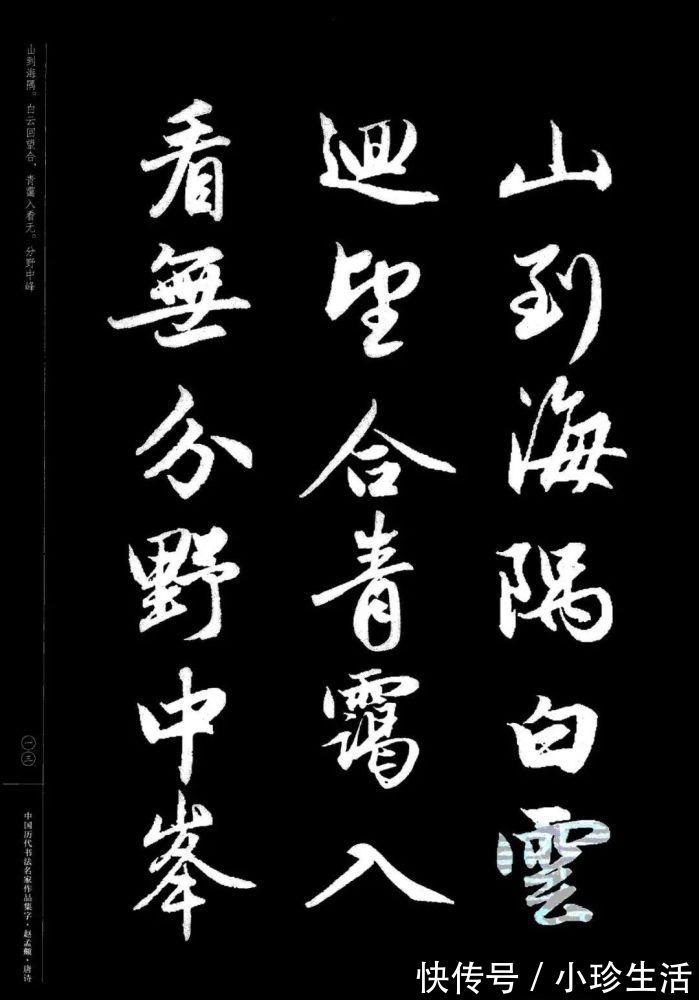 山到海隅白雲
迴望合青靄入
看無分野中峯
山到海隅。白云回望合，青霭入看无。分野中峰
一三
中国历代书法名家作品集字·赵孟頫·唐诗
快传号/小珍生活